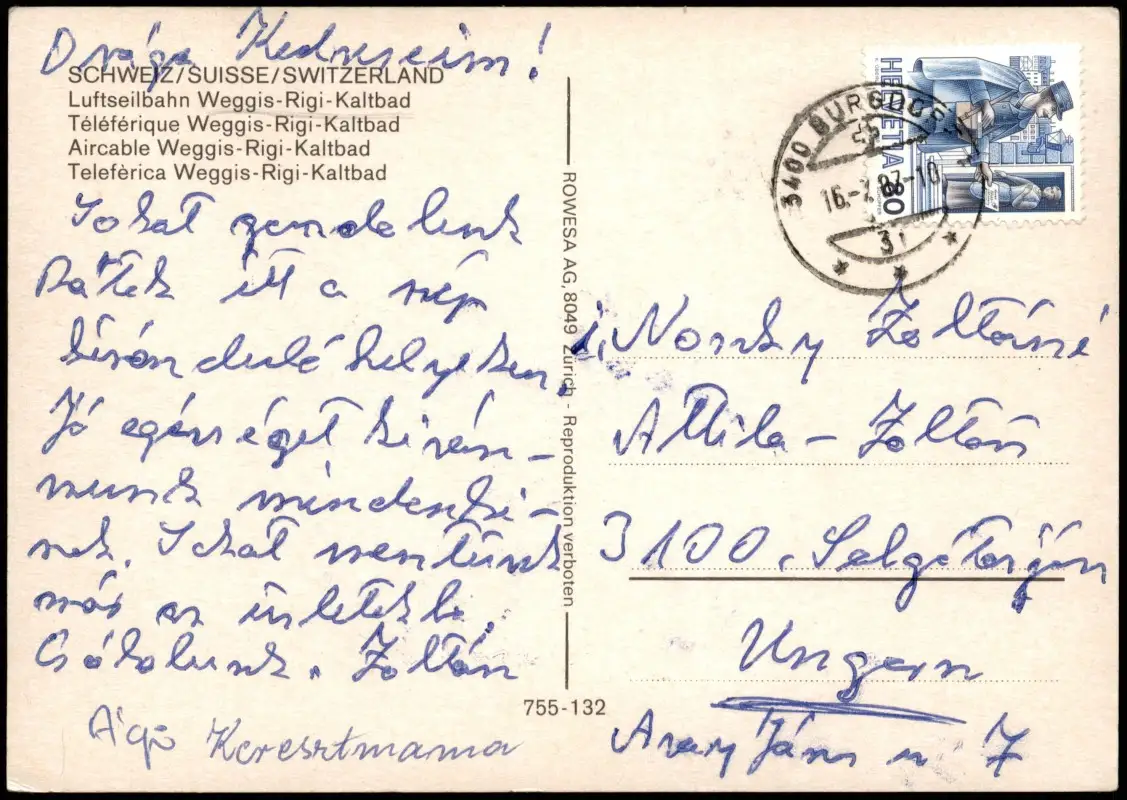 Drága Kedveseim!
SCHWEIZ/SUISSE/SWITZERLAND
Luftseilbahn Weggis-Rigi-Kaltbad
Téléférique Weggis-Rigi-Kaltbad
Aircable Weggis-Rigi-Kaltbad
Teleferica Weggis-Rigi-Kaltbad
Sokat gondolunk
Rátok itt a szép
kiránduló helyeken.
Jó egészséget kíván-
nunk mindenki-
nek. Sokat mentünk
már az üzletekbe.
Csókolunk. Zoltán
Ági Keresztmama
ROWESA AG, 8049 Zürich - Reproduktion verboten
755-132
HELVETIA
3400 BURGDORF
87-10
Zoltáné
Attila - Zoltán
3100. Salgótarján
Ungarn
Arany János u 7